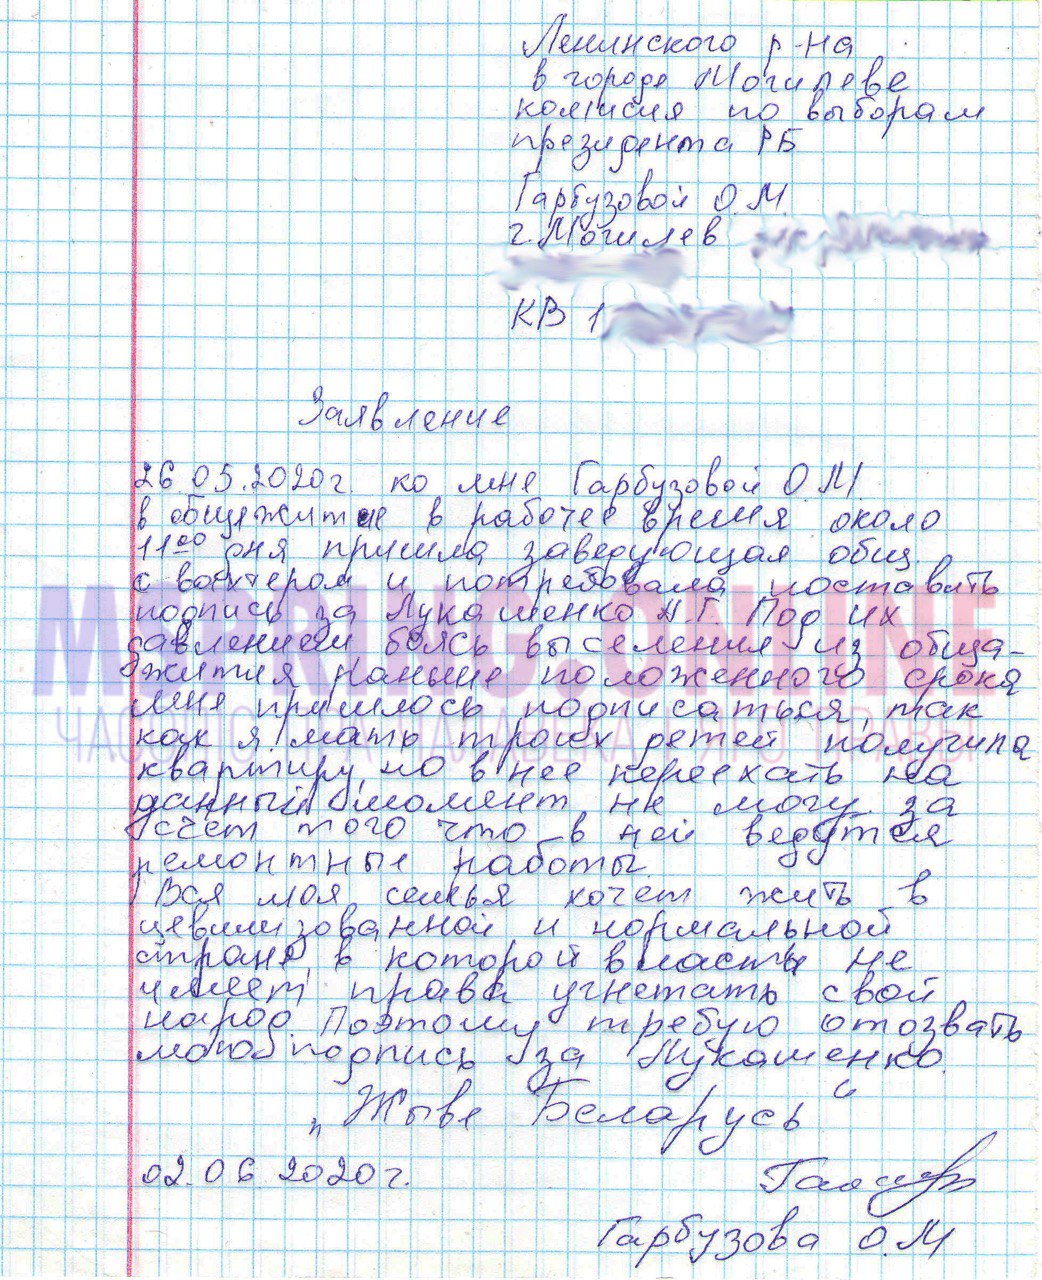 Ленинского р-на
в городе Могилеве
комисия по выборам
президента РБ
Гарбузовой О.М.
г. Могилев
КВ 1
Заявление
26.05.2020г. ко мне Гарбузовой О.М.
в общежитие в рабочее время около
11⁰⁰ дня пришла заведующая общ.
с вахтером и потребовала поставить
подпись за Лукашенко А.Г. Под их
давлением боясь выселения из обща-
жития раньше положенного срока
мне пришлось подписаться, так
как я мать троих детей получила
квартиру, но в нее переехать на
данный момент не могу за
счет того что в ней ведутся
ремонтные работы.
Вся моя семья хочет жить в
цевилизованной и нормальной
стране, в которой власть не
имеет права угнетать свой
народ. Поэтому требую отозвать
мою подпись за Лукашенко.
„Жыве Беларусь“
02.06.2020г.
Гарбузова О.М
MSPRING.ONLINE